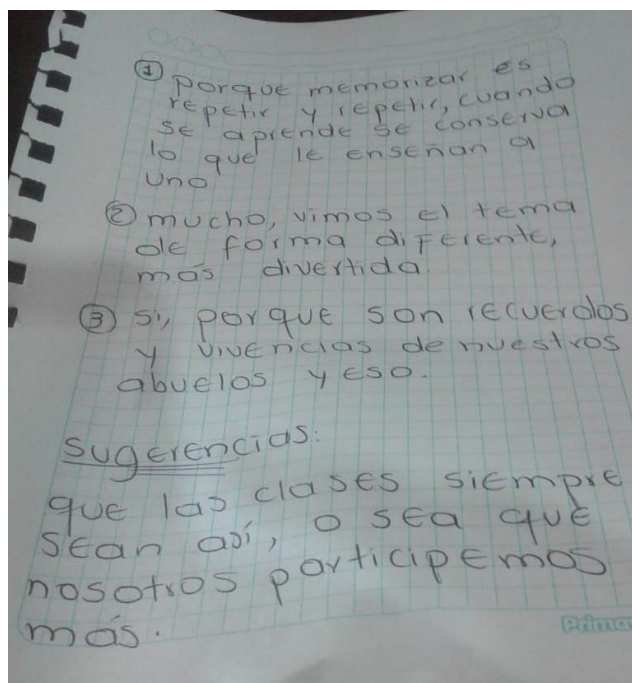 ① porque memorizar es
repetir y repetir, cuando
se aprende se conserva
lo que le enseñan a
uno
② mucho, vimos el tema
de forma diferente,
más divertida.
③ si, porque son recuerdos
y vivencias de nuestros
abuelos y eso.
sugerencias:
que las clases siempre
sean así, o sea que
nosotros participemos
más.